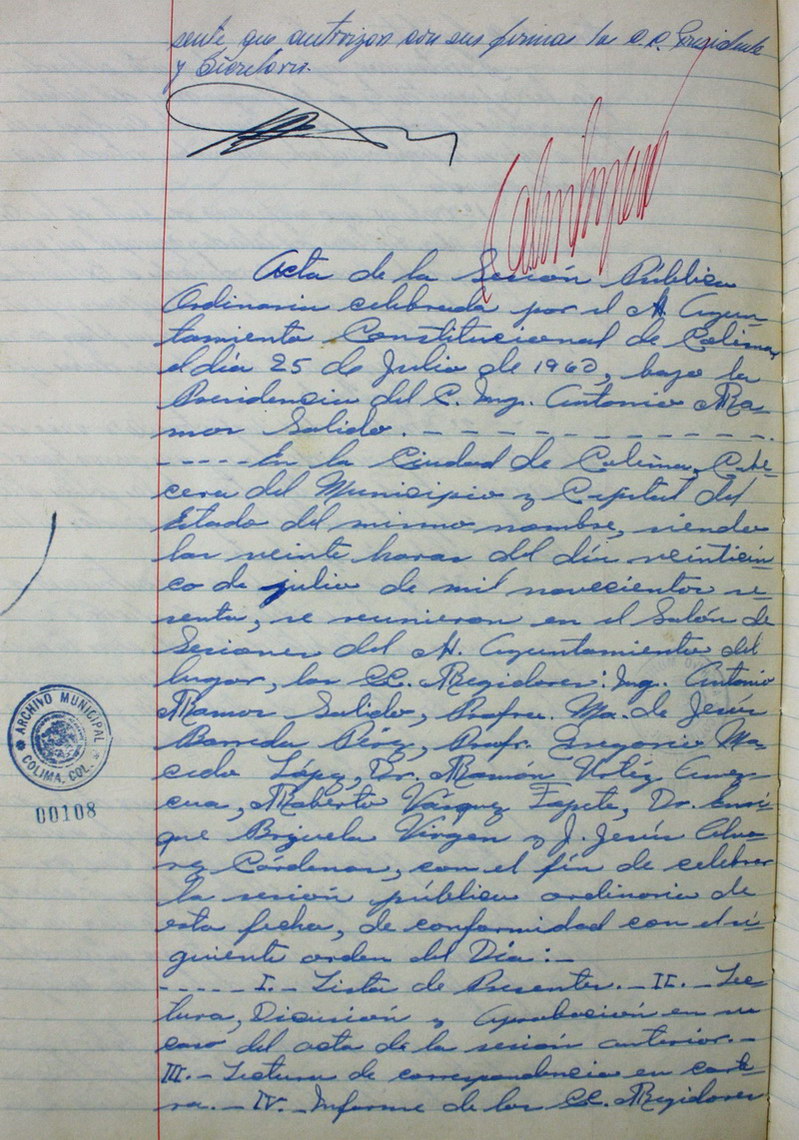 sente que autorizan con sus firmas los C.C. Presidente
y Secretario.
Acta de la Sesión Pública
Ordinaria celebrada por el H. Ayun-
tamiento Constitucional de Colima,
el día 25 de Julio de 1960, bajo la
Presidencia del C. Ing. Antonio Ra-
mos Salido. - - - - - - - - - - - - -
- - - - - En la Ciudad de Colima, Cabe-
cera del Municipio y Capital del
Estado del mismo nombre, siendo
las veinte horas del día veinticin
co de julio de mil novecientos se-
senta, se reunieron en el Salón de
Sesiones del H. Ayuntamiento del
lugar, los CC. Regidores: Ing. Antonio
Ramos Salido, Profra. Ma. de Jesús
Barreda Pérez, Profr. Gregorio Ma-
cedo López, Dr. Ramón
Roberto Vásquez Dr. Enri-
que Brizuela Virgen y J. Jesús Alva-
rez Cárdenas, con el fin de celebrar
la sesión pública ordinaria de
esta fecha, de conformidad con el si-
guiente orden del Día:-
- - - - - I.- Lista de Presentes.- II.- Lec-
tura, Discusión y Aprobación en su
caso del acta de la sesión anterior.-
III.- Lectura de correspondencia en carte-
ra.- IV.- Informe de los CC. Regidores
ARCHIVO MUNICIPAL
COLIMA, COL.
00108